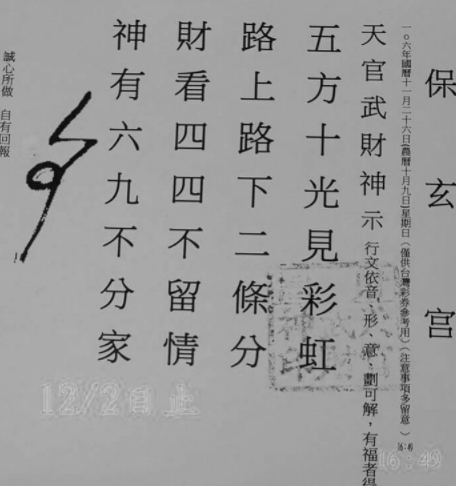 保玄宮
一0六年國曆十一月二十六日(農曆十月九日)星期日(僅供台灣彩券參考用)(注意事項多留意)
16:49
天官武財神示 行文依音、形、意、劃可解，有福者得
五方十光見彩虹
路上路下二條分
財看四四不留情
神有六九不分家
誠心所做 自有回報
12/2日止
16:49